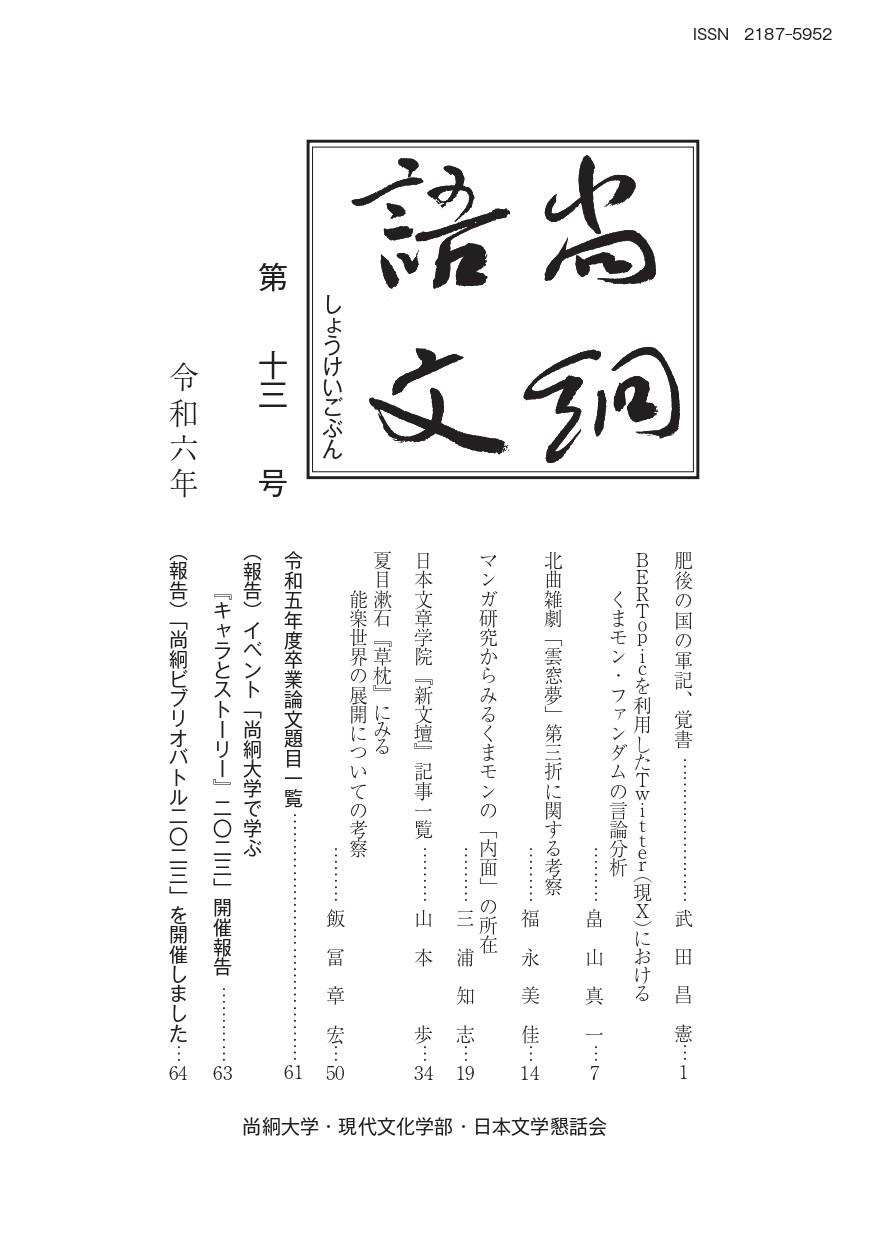 ISSN 2187-5952
尚絅
語文
しょうけいごぶん
第十三号
令和六年
肥後の国の軍記、覚書……………………武田昌憲…1
BERTopicを利用したTwitter（現X）における
くまモン・ファンダムの言論分析
………畠山真一…7
北曲雑劇「雲窓夢」第三折に関する考察
………福永美佳…14
マンガ研究からみるくまモンの「内面」の所在
………三浦知志…19
日本文章学院『新文壇』記事一覧………山本歩…34
夏目漱石『草枕』にみる
能楽世界の展開についての考察
………飯冨章宏…50
令和五年度卒業論文題目一覧……………………………………61
（報告）イベント「尚絅大学で学ぶ
『キャラとストーリー』二〇二三」開催報告…………63
（報告）「尚絅ビブリオバトル二〇二三」を開催しました…64
尚絅大学・現代文化学部・日本文学懇話会